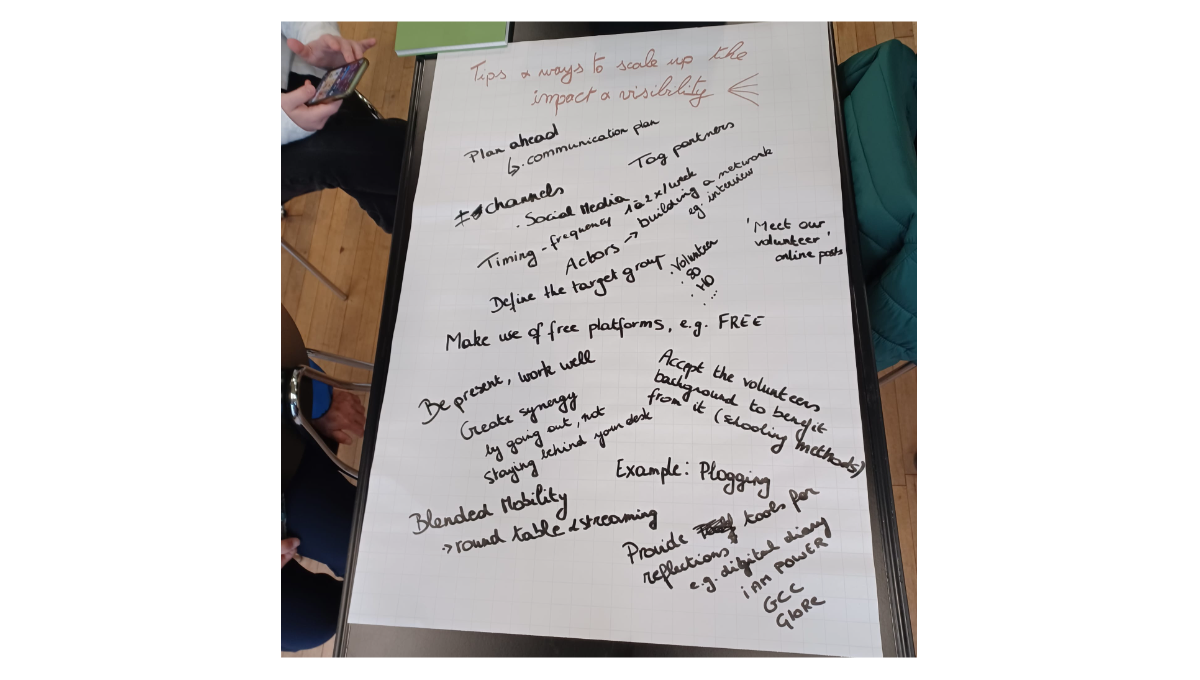 Tips & ways to scale up the
impact & visibility
Plan ahead
↳ communication plan
Tag partners
≠ channels
. Social Media
Timing - frequency 1 à 2x/week
Actors → building a network
eg. interview
'Meet our
volunteer'
online posts
Define the target group
. Volunteer
. SO
. HO
. ...
Make use of free platforms, e.g. FREE
Be present, work well
Create synergy
by going out, not
staying behind your desk
Accept the volunteers
background to benefit
from it (schooling methods)
Example: Plogging
Blended Mobility
-> round table & streaming
Provide tools for
reflections
e.g. digital diary
i AM POWER
GCC
GloRe